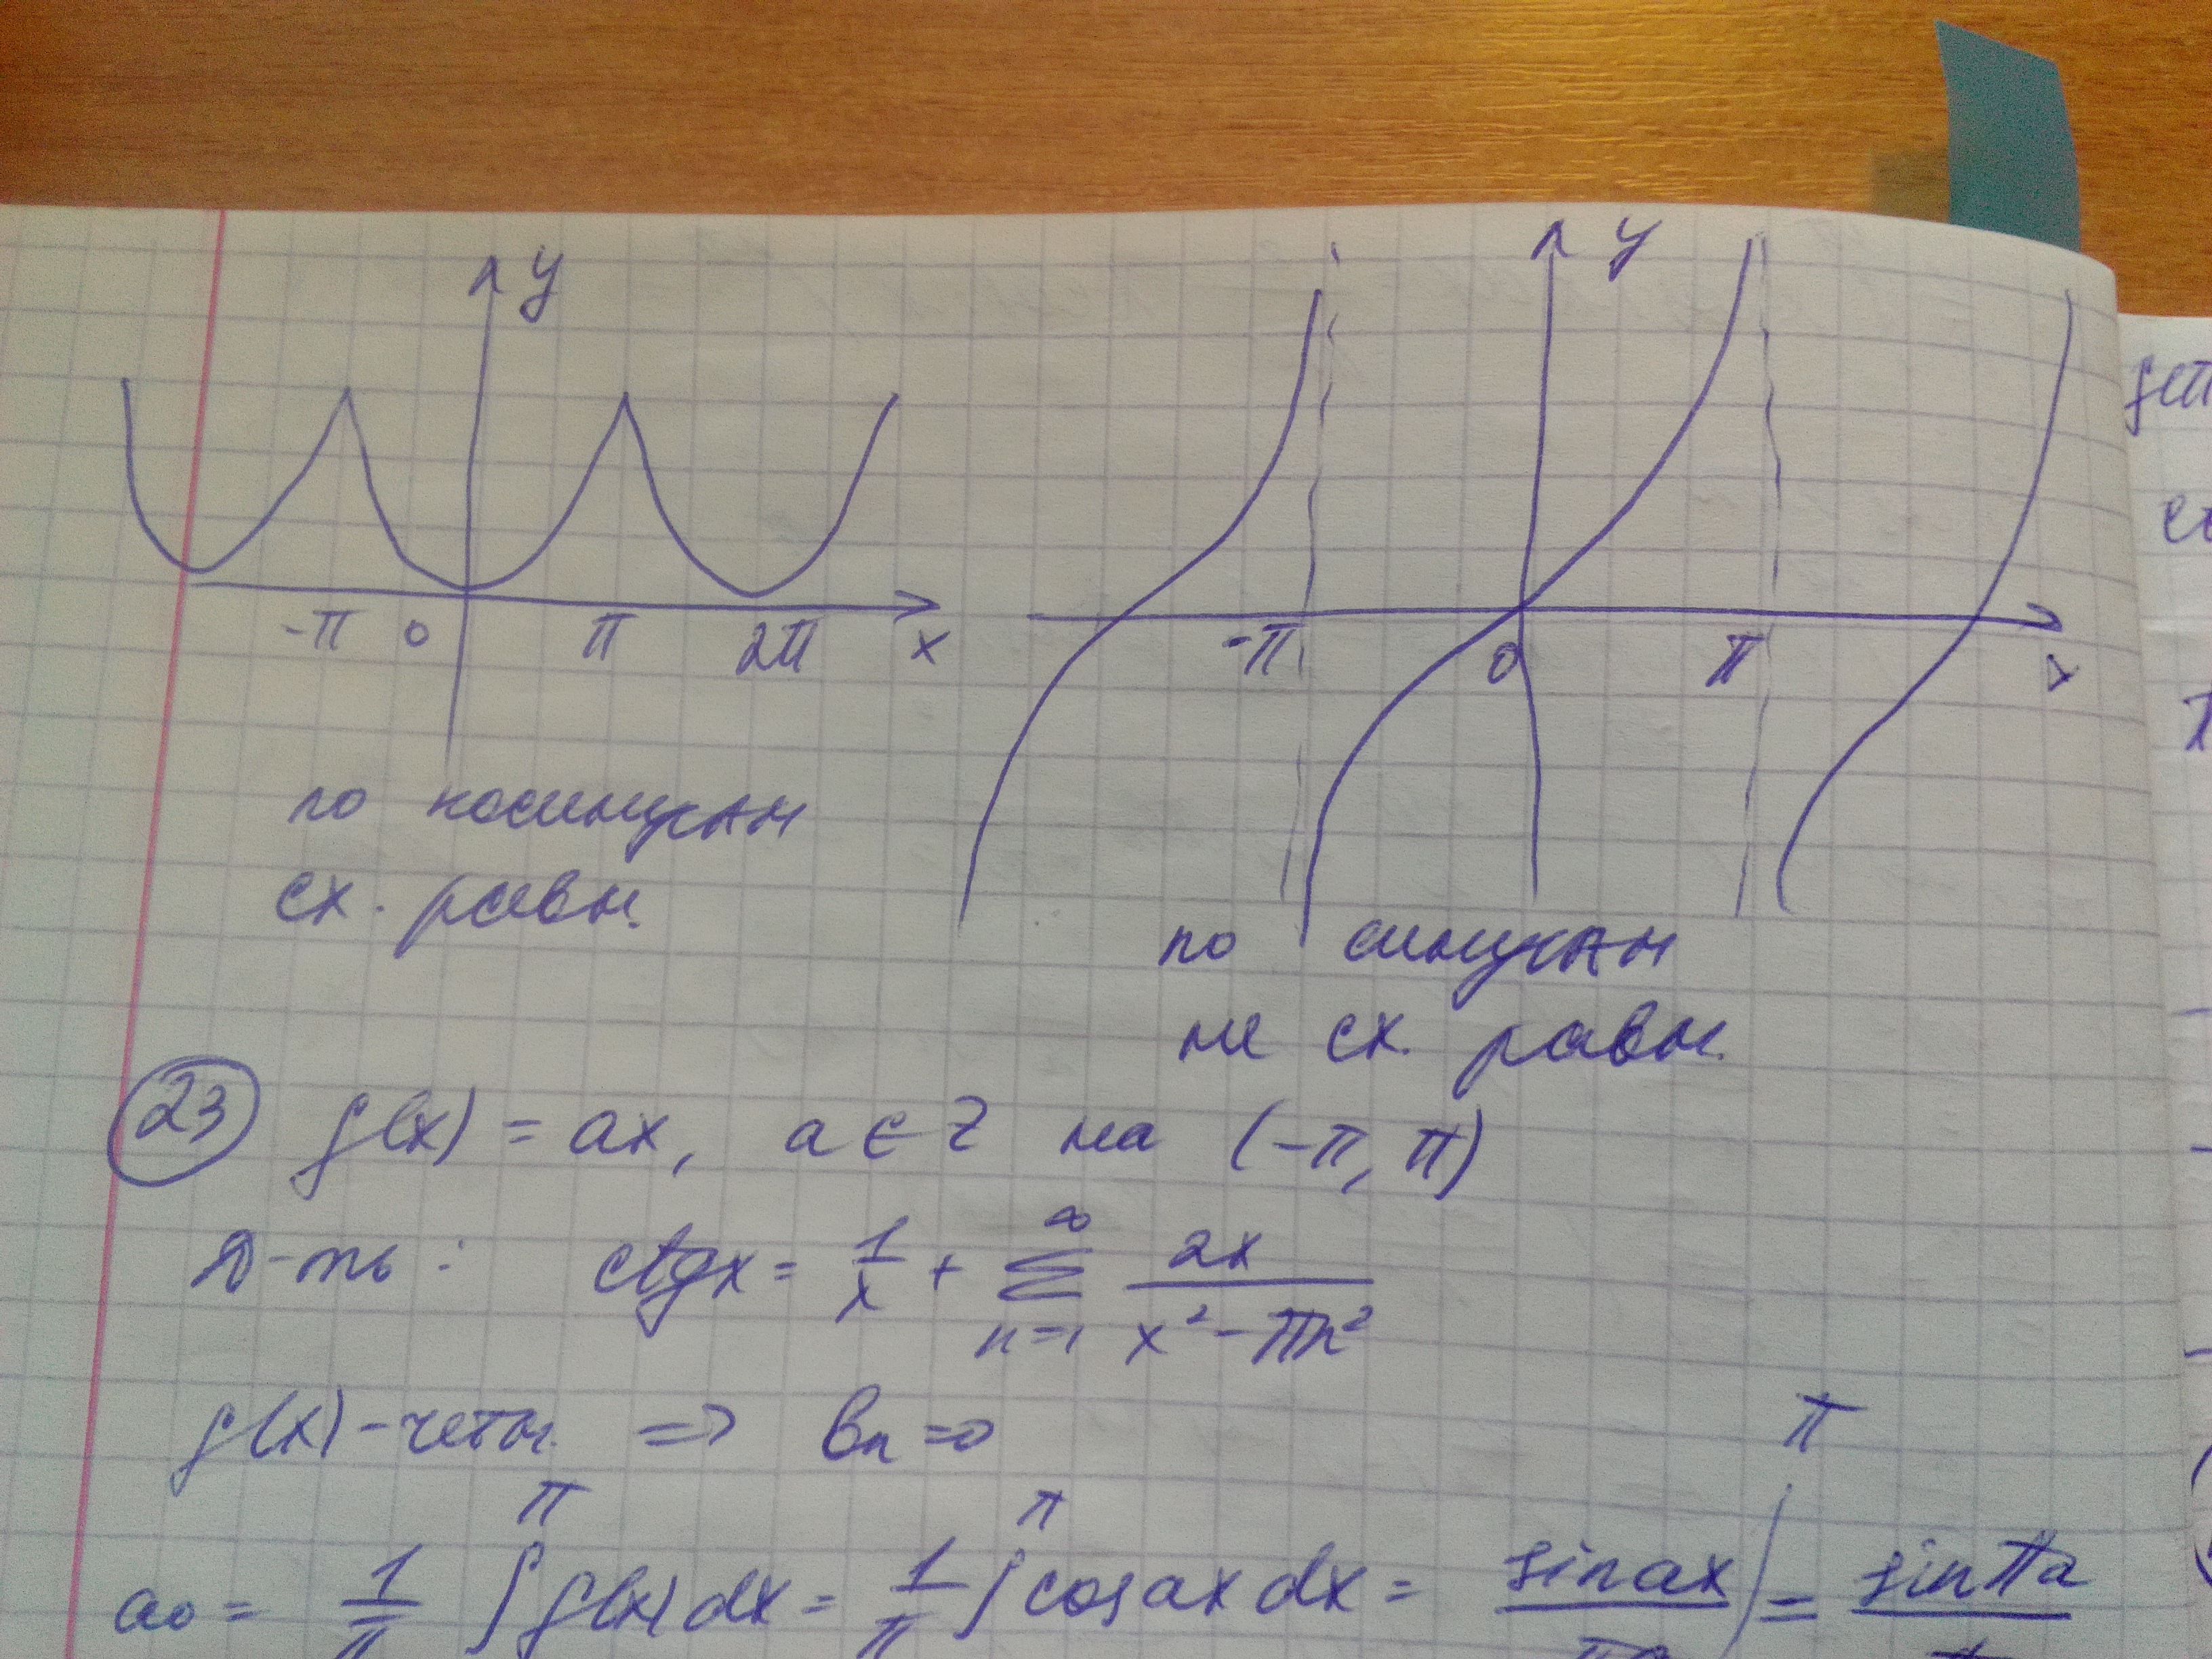 y
-π 0 π 2π x
по косинусам
сх. равн.
y
-π 0 π x
по синусам
не сх. равн.
23 f(x) = ax, a ∈ Z на (-π, π)
Д-ть: ctgx = 1/x + ∑_{n=1}^{∞} 2x/(x² - πn²)
f(x) - четн. => bn = 0
a0 = 1/π ∫^π f(x) dx = 1/π ∫^π cos ax dx = sin ax / πa |^π = sin πa